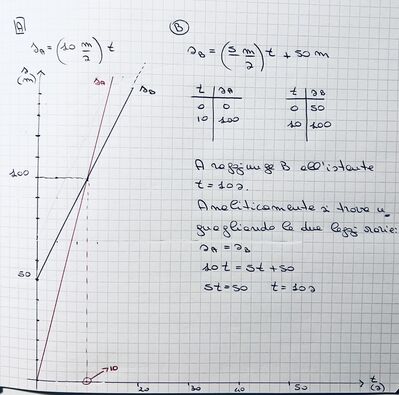 A
B
s_A = (10 m/s) t
s_B = (5 m/s) t + 50 m
s (m)
s_A
s_B
t | s_A
0 | 0
10 | 100
t | s_B
0 | 50
10 | 100
A raggiunge B all'istante
t = 10 s.
Analiticamente si trova u_
guagliando le due leggi orarie:
s_A = s_B
10t = 5t + 50
5t = 50 t = 10 s
100
50
10
20
30
40
50
t (s)